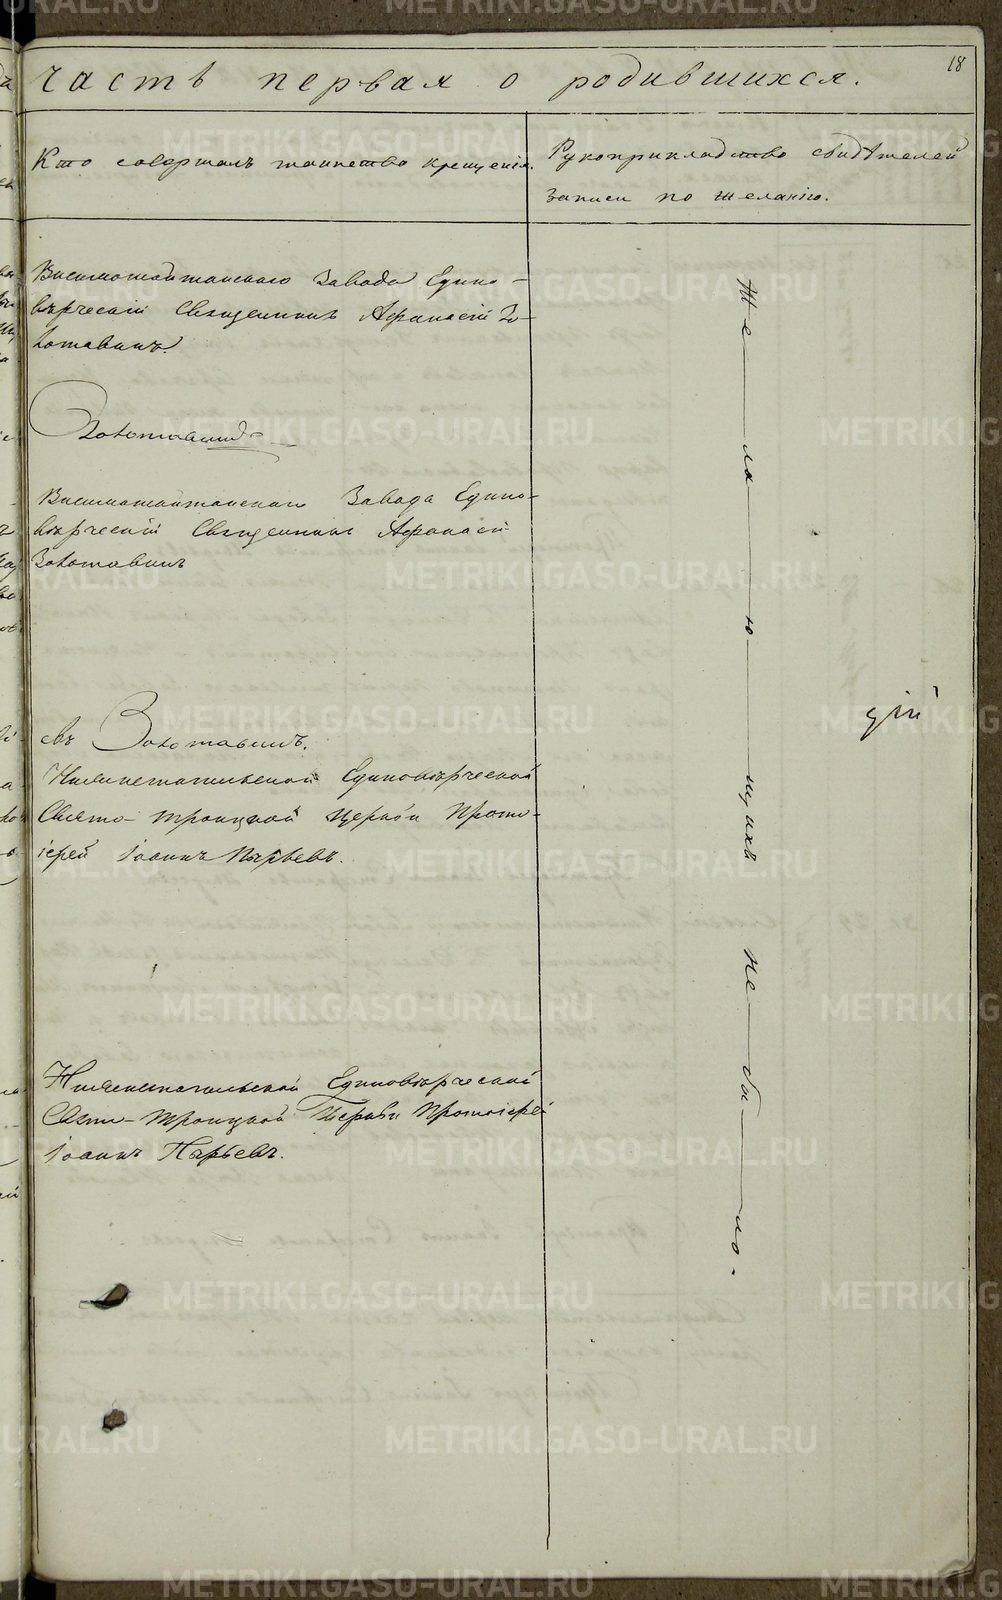 18
часть первая о родившихся.
Кто совершалъ таинство крещенія.
Рукоприкладство свидѣтелей
записи по желанію.
Висимошайтанскаго Завода Едино-
вѣрческій Священникъ Афанасій Зо-
лотавинъ.
Золотавинъ
Висимошайтанскаго Завода Едино-
вѣрческій Священникъ Афанасій
Золотавинъ
свъ Золотавинъ.
Нижнетагильской Единовѣрческой
Свято-Троицкой Церкви Прото-
іерей Іоаннъ Пырьевъ.
Нижнетагильской Единовѣрческой
Свято-Троицкой Церкви Протоіерей
Іоаннъ Пырьевъ.
Же—ла—ю—щихъ не—бы—ло.
дій
METRIKI.GASO-URAL.RU